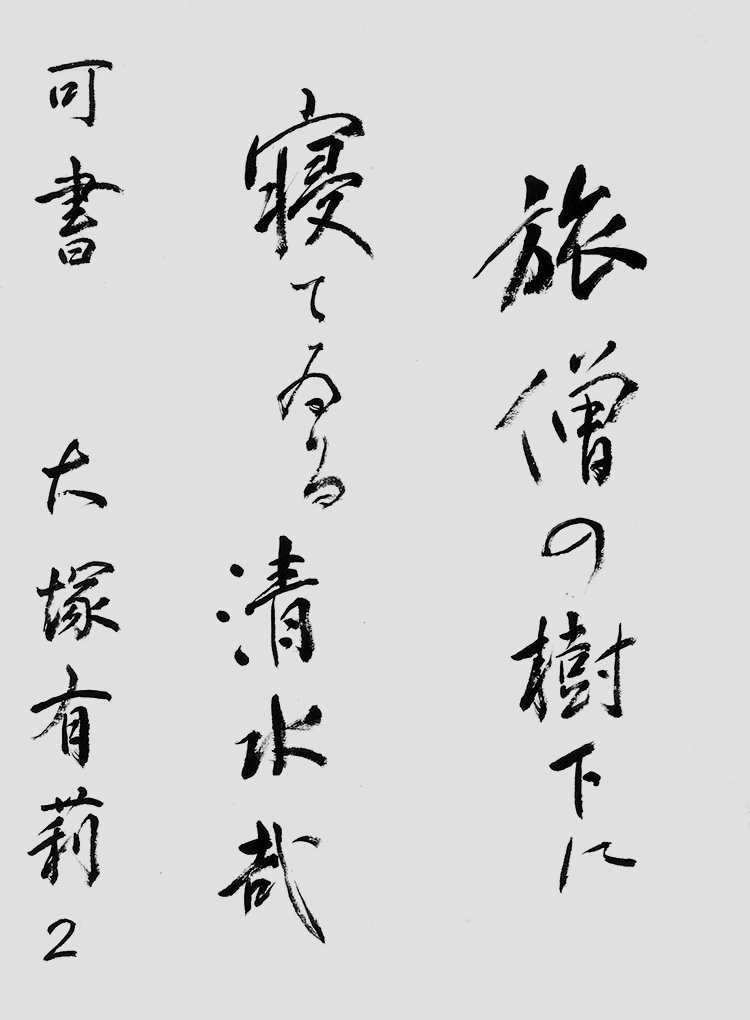 旅僧の樹下に
寝てゐる清水哉
可書 大塚有莉2